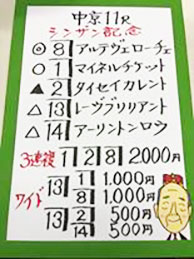 中京11R
シンザン記念
◎8アルテヴェローチェ
○1マイネルチケット
▲2タイセイカレント
△13レーヴブリリアント
△14アーリントンロウ
3連複 1 2 8 2,000円
ワイド 13 1 1,000円
8 1,000円
13 2 500円
14 500円